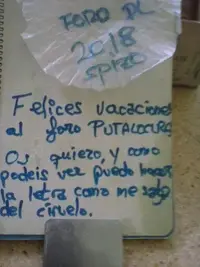 FORO PL
2018
spizo
Felices vacaciones
al foro PUTALOCURA
Os quiero, y como
podeis ver puedo hacer
la letra como me salga
del ciruelo.